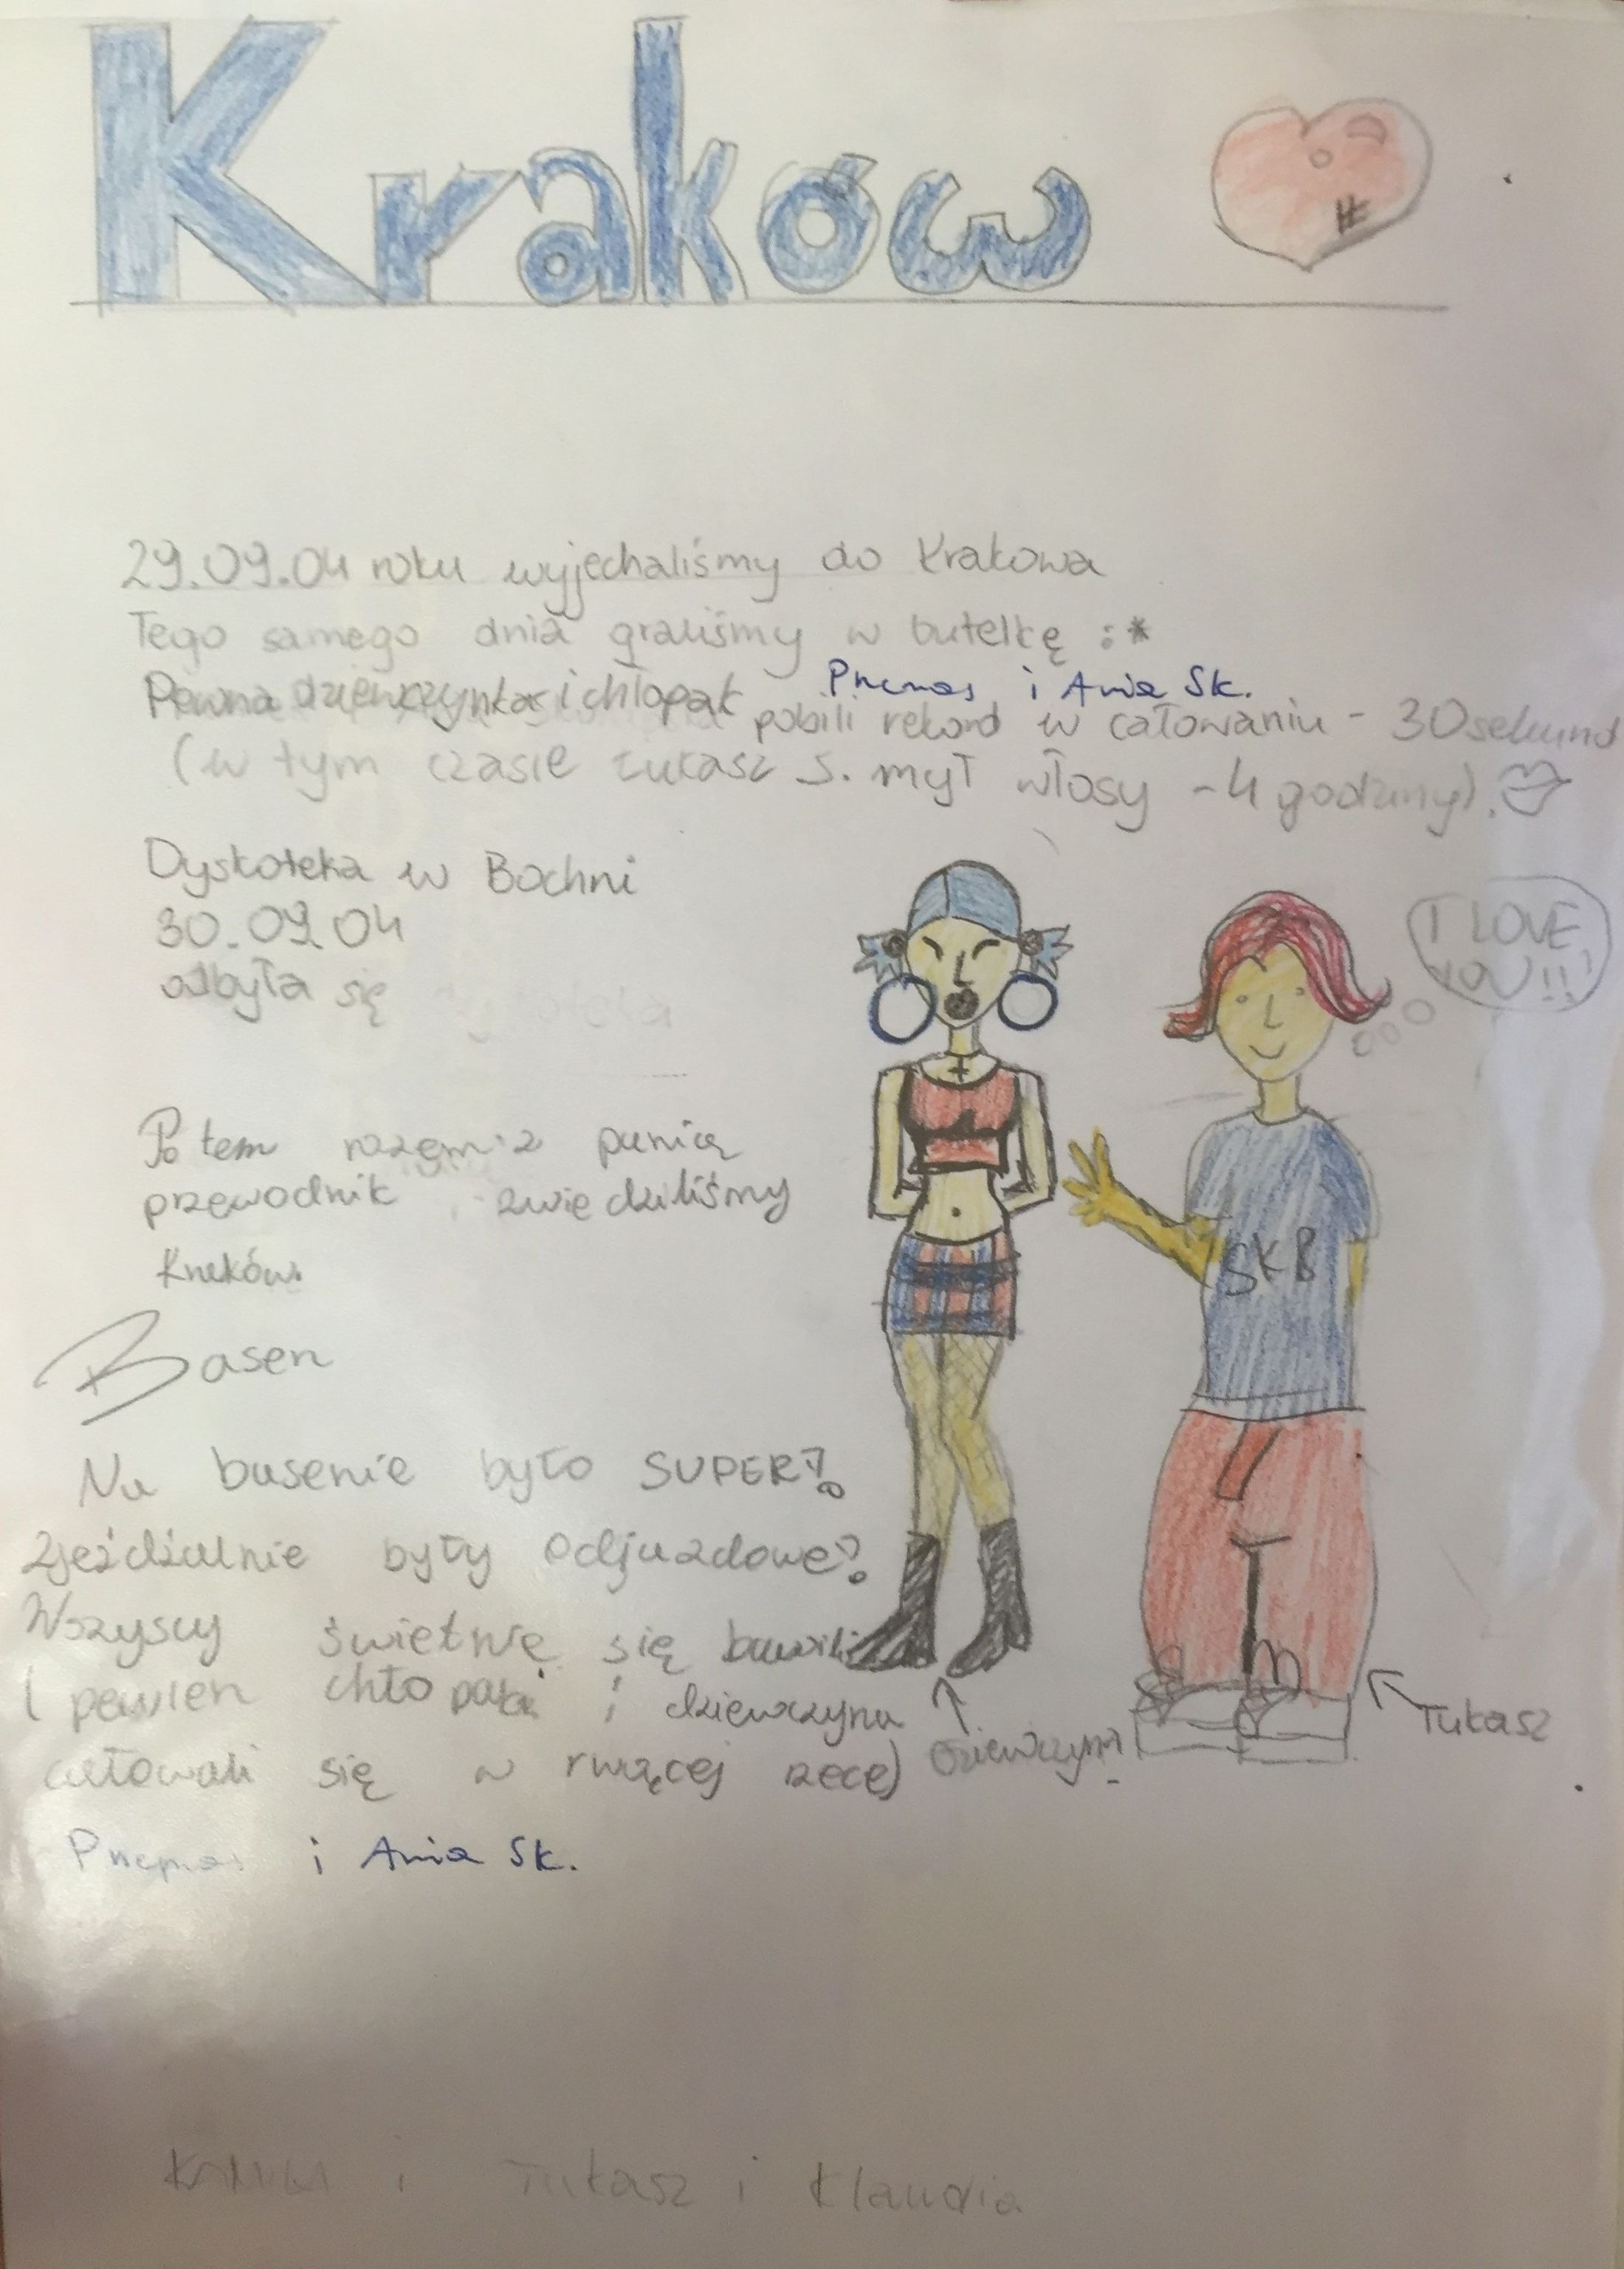 Kraków
29.09.04 roku wyjechaliśmy do Krakowa
Tego samego dnia graliśmy w butelkę :*
Pewna dziewczynka i chłopak pobili rekord w całowaniu - 30 sekund
i Ania Sk.
(w tym czasie Łukasz S. mył włosy - 4 godziny).
Dyskoteka w Bochni
30.09.04
odbyła się
I LOVE
YOU!!!
Potem razem z panią
przewodnik zwiedziliśmy
Kraków.
SKB
Basen
Na basenie było SUPER!
Zjeżdżalnie były odjazdowe!
Wszyscy świetnie się bawili
( pewien chłopak i dziewczyna
całowali się w rwącej rzece)
dziewczyna
Łukasz
i Ania Sk.
i Łukasz i Klaudia